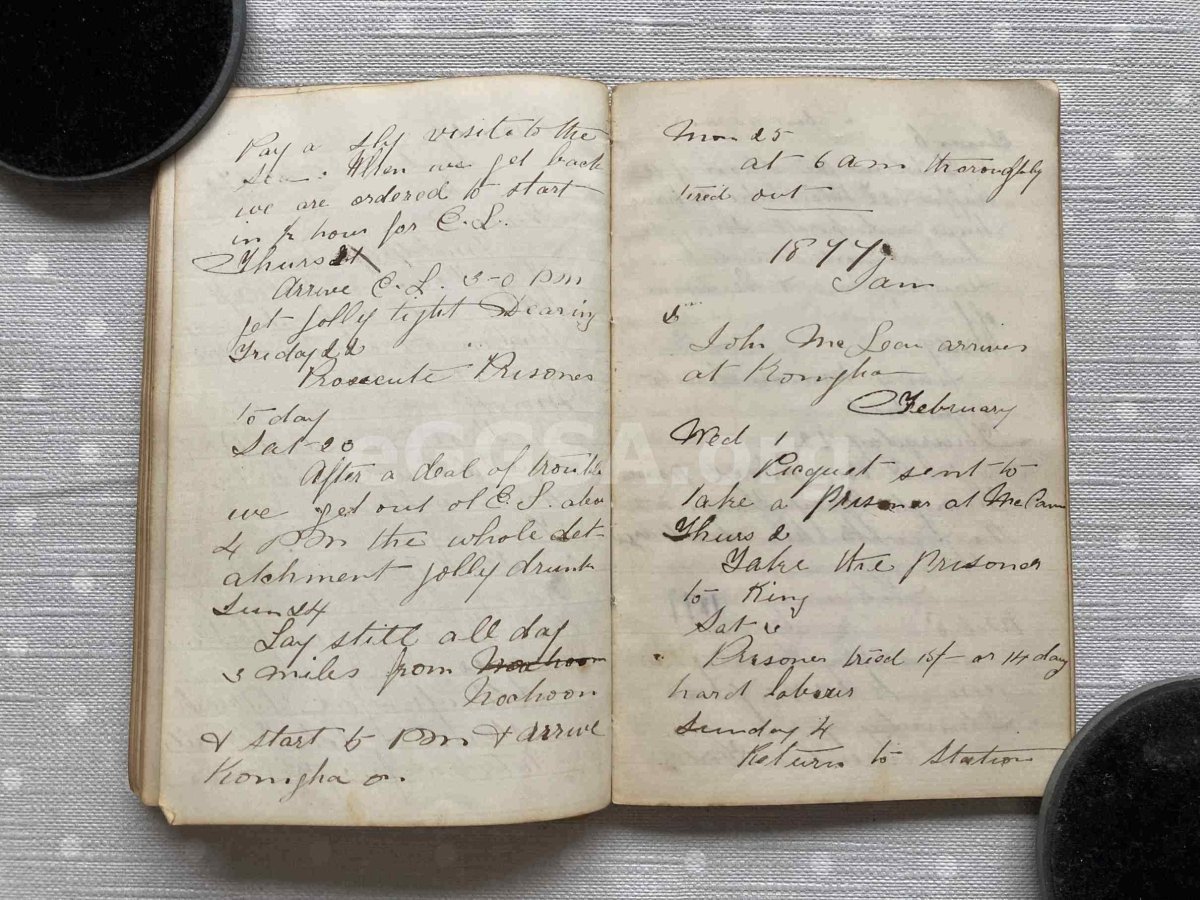 Pay a sly visit to the
Sea. When we get back
we are ordered to start
in ½ hour for E. L.
Thurs 21
Arrive E. L. 3-0 PM
get jolly tight
Friday 22
Prosecute Prisones
to day
Sat 23
After a deal of trouble
we get out of E. L. abou
4 P.M the whole det-
atchment jolly drunk
Sun 24
Lay still all day
3 miles from
Noohoon
& start 6 PM & arrive
Komgha on
Mon 25
at 6 am thoroughly
tired out
1877
Jan
John McLean arrives
at Komgha
February
Wed 1
Picquet sent to
take a Prisoner at McCann
Thurs 2
Take the Prisoner
to King
Sat
Prisoner tried 15/- or 14 day
hard labour
Sunday 4
Return to Station
eGGSA.org